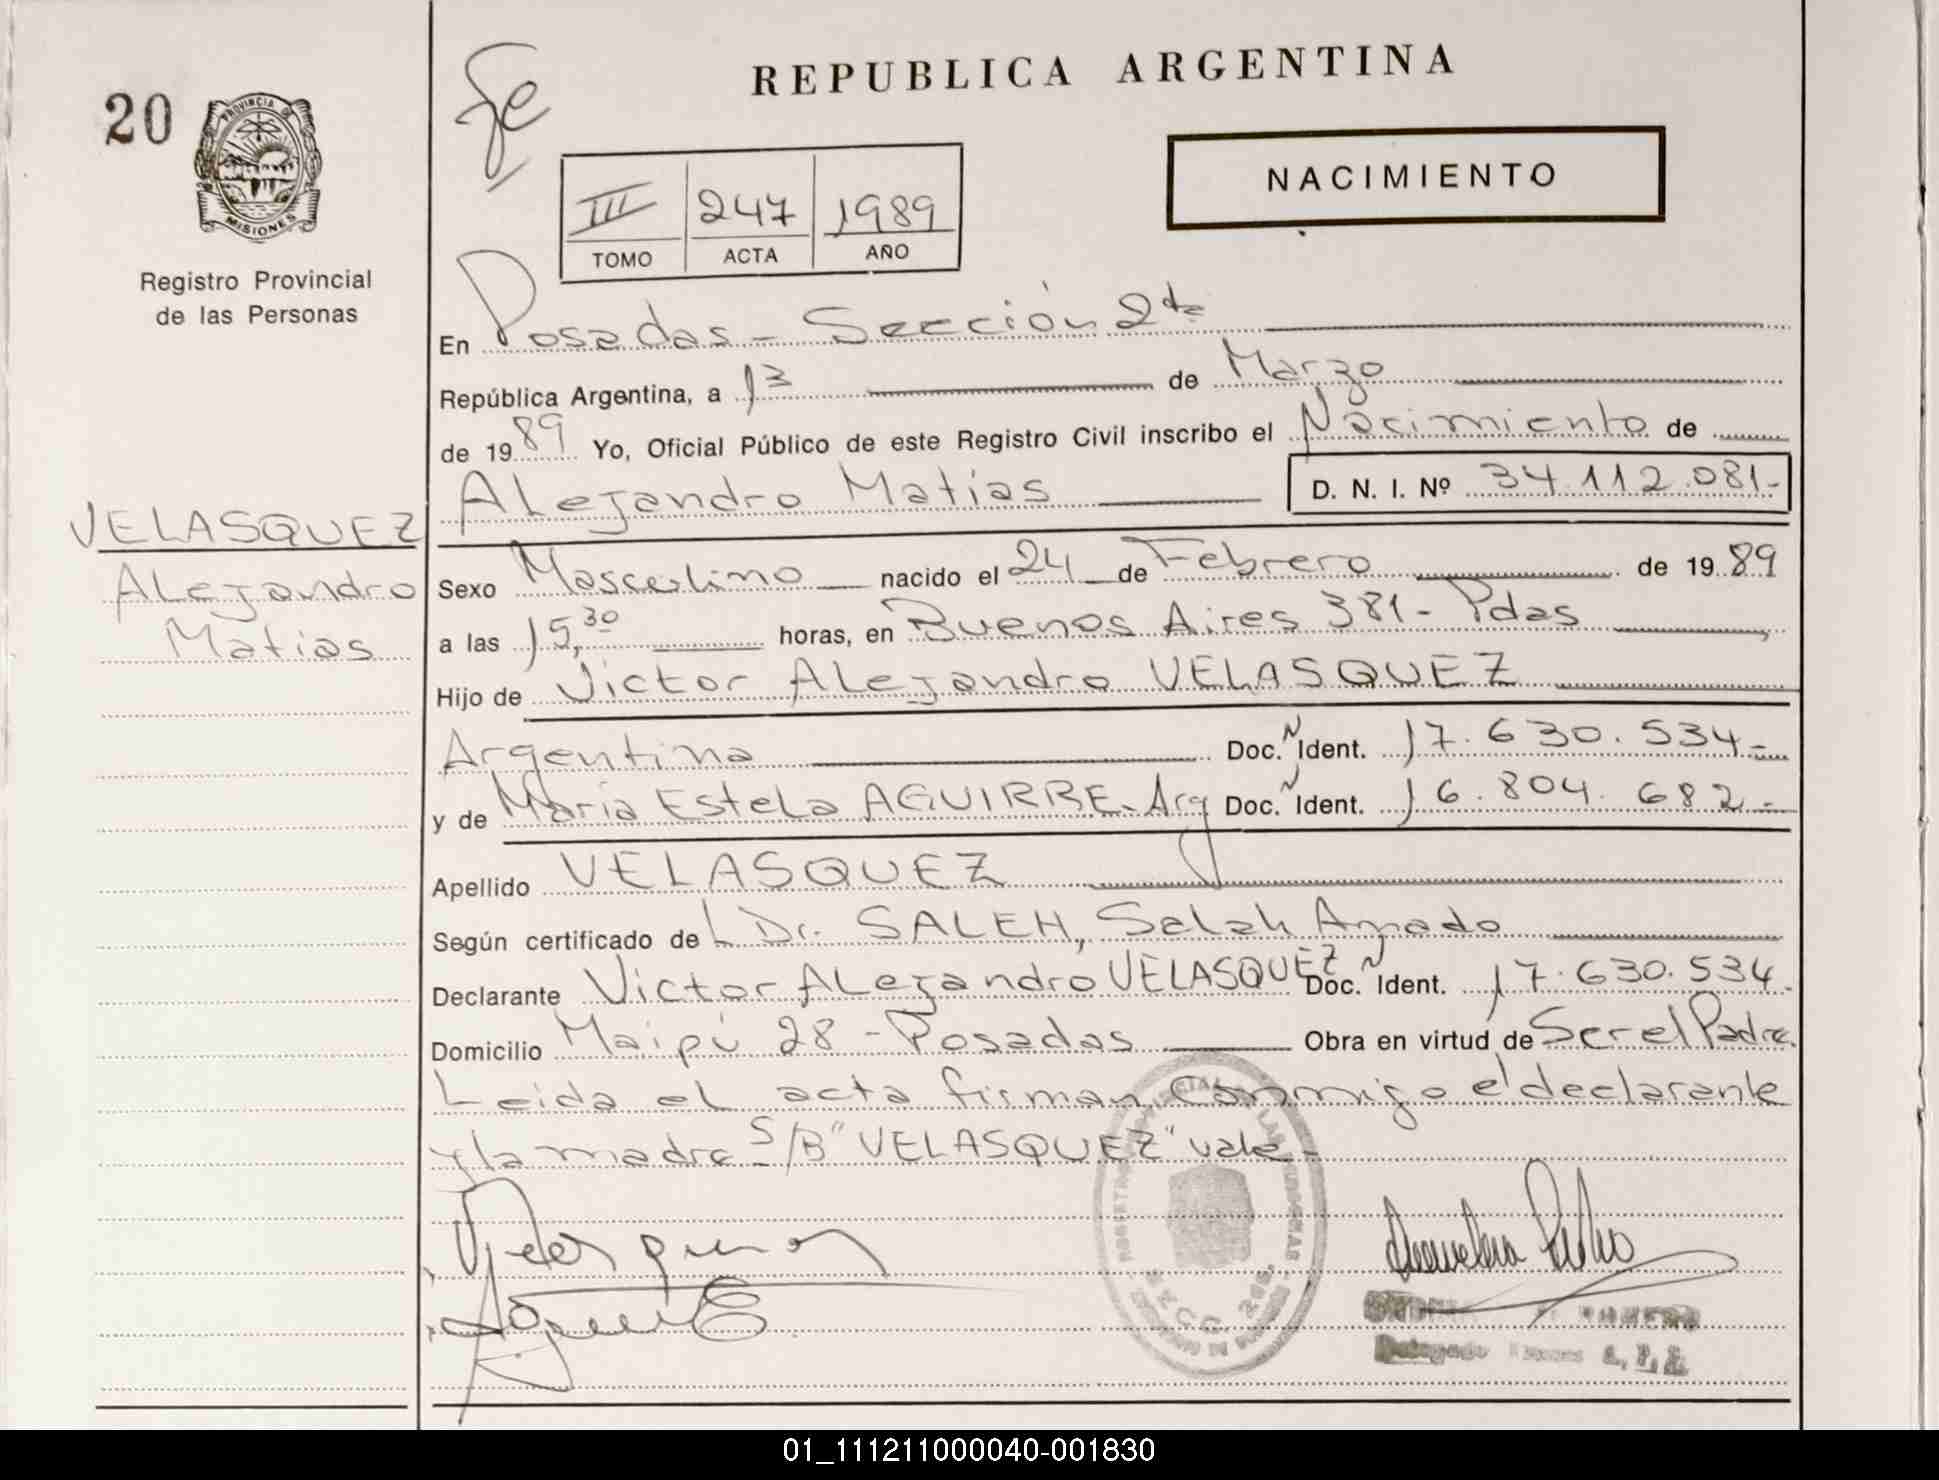 20
PROVINCIA DE
MISIONES
Registro Provincial
de las Personas
VELASQUEZ
Alejandro
Matias
REPUBLICA ARGENTINA
NACIMIENTO
III 247 1989
TOMO ACTA AÑO
En Posadas - Sección 2da
República Argentina, a 13 de Marzo
de 1989 Yo, Oficial Público de este Registro Civil inscribo el Nacimiento de
Alejandro Matias D. N. I. Nº 34.112.081-
Sexo Masculino nacido el 24 de Febrero de 1989
a las 15,30 horas, en Buenos Aires 381 - Pdas
Hijo de Victor Alejandro VELASQUEZ
Argentina Doc. N Ident. 17.630.534-
y de María Estela AGUIRRE - Arg Doc. N Ident. 16.804.682-
Apellido VELASQUEZ
Según certificado del Dr. SALEH, Salah Amado
Declarante Victor Alejandro VELASQUEZ Doc. N Ident. 17.630.534
Domicilio Maipú 28 - Posadas Obra en virtud de Ser el Padre
Leida el acta firman conmigo el declarante
y la madre - S/B "VELASQUEZ" vale -
01_111211000040-001830